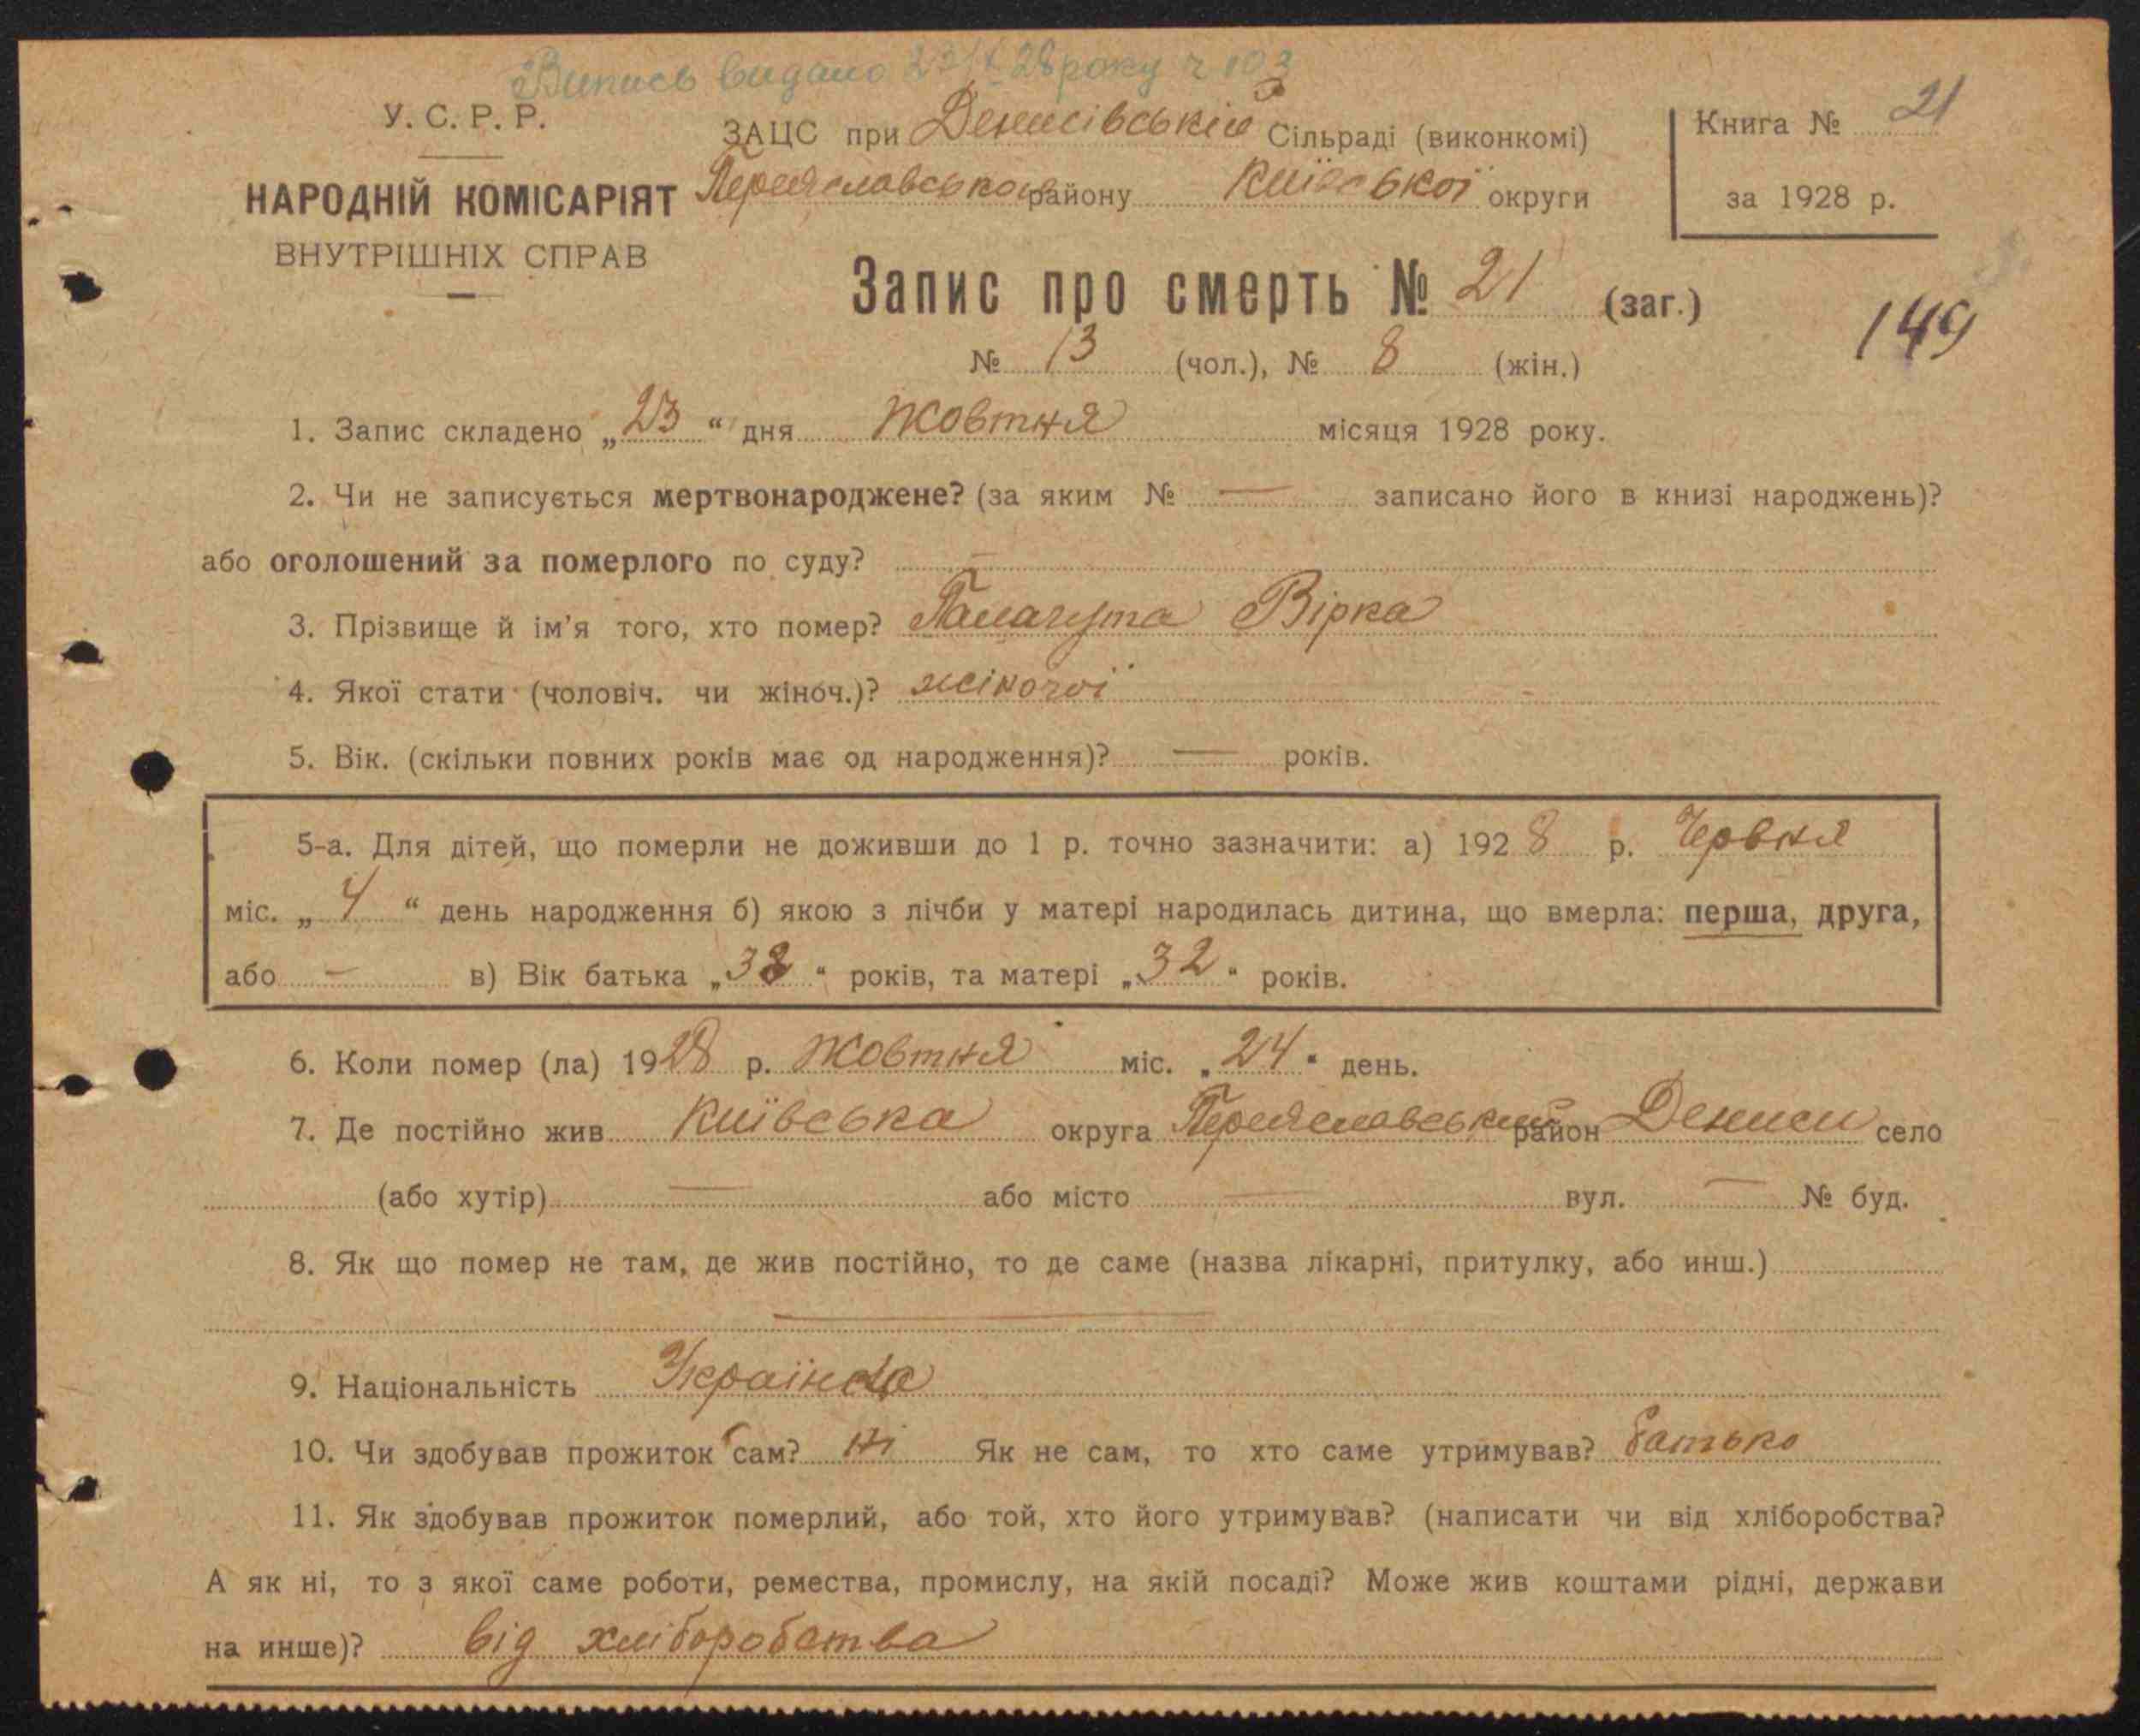 Випись видано 23/X 28 року ч 103
У. С. Р. Р.
НАРОДНІЙ КОМІСАРІЯТ
ВНУТРІШНІХ СПРАВ
ЗАЦС при Денисівській Сільраді (виконкомі)
Переяславського району Київської округи
Книга № 21
за 1928 р.
Запис про смерть № 21 (заг.)
149
№ 13 (чол.), № 8 (жін.)
1. Запис складено „23“ дня Жовтня місяця 1928 року.
2. Чи не записується мертвонароджене? (за яким № — записано його в книзі народжень)?
або оголошений за померлого по суду? —
3. Прізвище й ім'я того, хто помер? Вірка
4. Якої стати (чоловіч. чи жіноч.)? жіночої
5. Вік. (скільки повних років має од народження)? — років.
5-а. Для дітей, що померли не доживши до 1 р. точно зазначити: а) 1928 р. Червня
міс. „4“ день народження б) якою з лічби у матері народилась дитина, що вмерла: перша, друга,
або — в) Вік батька „ “ років, та матері „32“ років.
6. Коли помер (ла) 1928 р. Жовтня міс. „24“ день.
7. Де постійно жив Київська округа Переяславський район Дениси село
(або хутір) — або місто — вул. — № буд.
8. Як що помер не там, де жив постійно, то де саме (назва лікарні, притулку, або инш.)
—
9. Національність Українка
10. Чи здобував прожиток сам? ні Як не сам, то хто саме утримував? батько
11. Як здобував прожиток померлий, або той, хто його утримував? (написати чи від хліборобства?
А як ні, то з якої саме роботи, ремества, промислу, на якій посаді? Може жив коштами рідні, держави
на инше)? від хліборобства